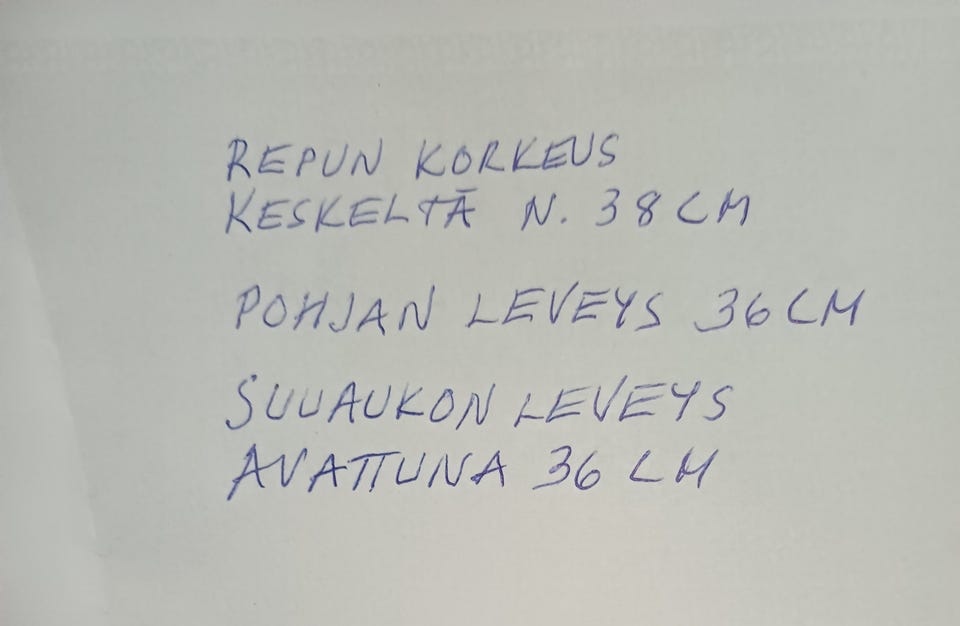 REPUN KORKEUS
KESKELTÄ N. 38 CM
POHJAN LEVEYS 36 CM
SUUAUKON LEVEYS
AVATTUNA 36 CM